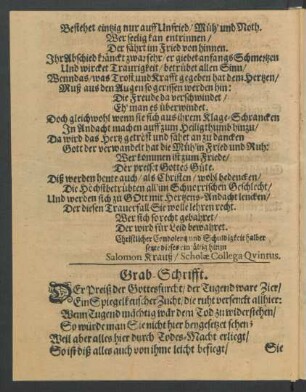 Bestehet eintzig nur auff Unfried / Müh / und Noth.
Wer seelig kan entrinnen /
Der fährt im Fried von hinnen.
Ihr Abschied kränckt zwar sehr / er giebet anfangs Schmertzen
Und wircket Traurigkeit / betrübt allen Sinn /
Wenn das / was Trost und Krafft gegeben hat dem Hertzen /
Muß aus den Augen so gerissen werden hin:
Die Freude da verschwindet /
Eh' man es überwindet.
Doch gleichwohl wenn sie sich aus ihrem Klage-Schrancken
In Andacht machen auff zum Heiligthumb hinzu /
Da wird das Hertz getröst und fähet an zu dancken
Gott der verwandelt hat die Müh in Fried und Ruh:
Wer kommen ist zum Friede /
Der preist Gottes Güte.
Diß werden heute auch / als Christen / wohl bedencken /
Die Höchstbetrübten all' im Schnorrischen Geschlecht /
Und werden sich zu GOtt mit Hertzens-Andacht lencken /
Der diesen Trauerfall Sie wolle lehren recht.
Wer sich so recht gebahret /
Der wird für Leid bewahret.
Christlicher Condolentz und Schuldigkeit halber
setzte dieses
Salomon Krauß / Scholæ Collega Qvintus.
Grab-Schrifft.
DEr Preiß der Gottesfurcht / der Tugend ware Zier /
Ein Spiegel keuscher Zucht / die ruht versenckt allhier:
Wenn Tugend mächtig wär dem Tod zu widerstehen /
So würde man Sie nicht hier hengesetzet sehen;
Weil aber alles hier durch Todes-Macht erliegt /
So ist diß alles auch von ihme leicht besiegt /
Sie